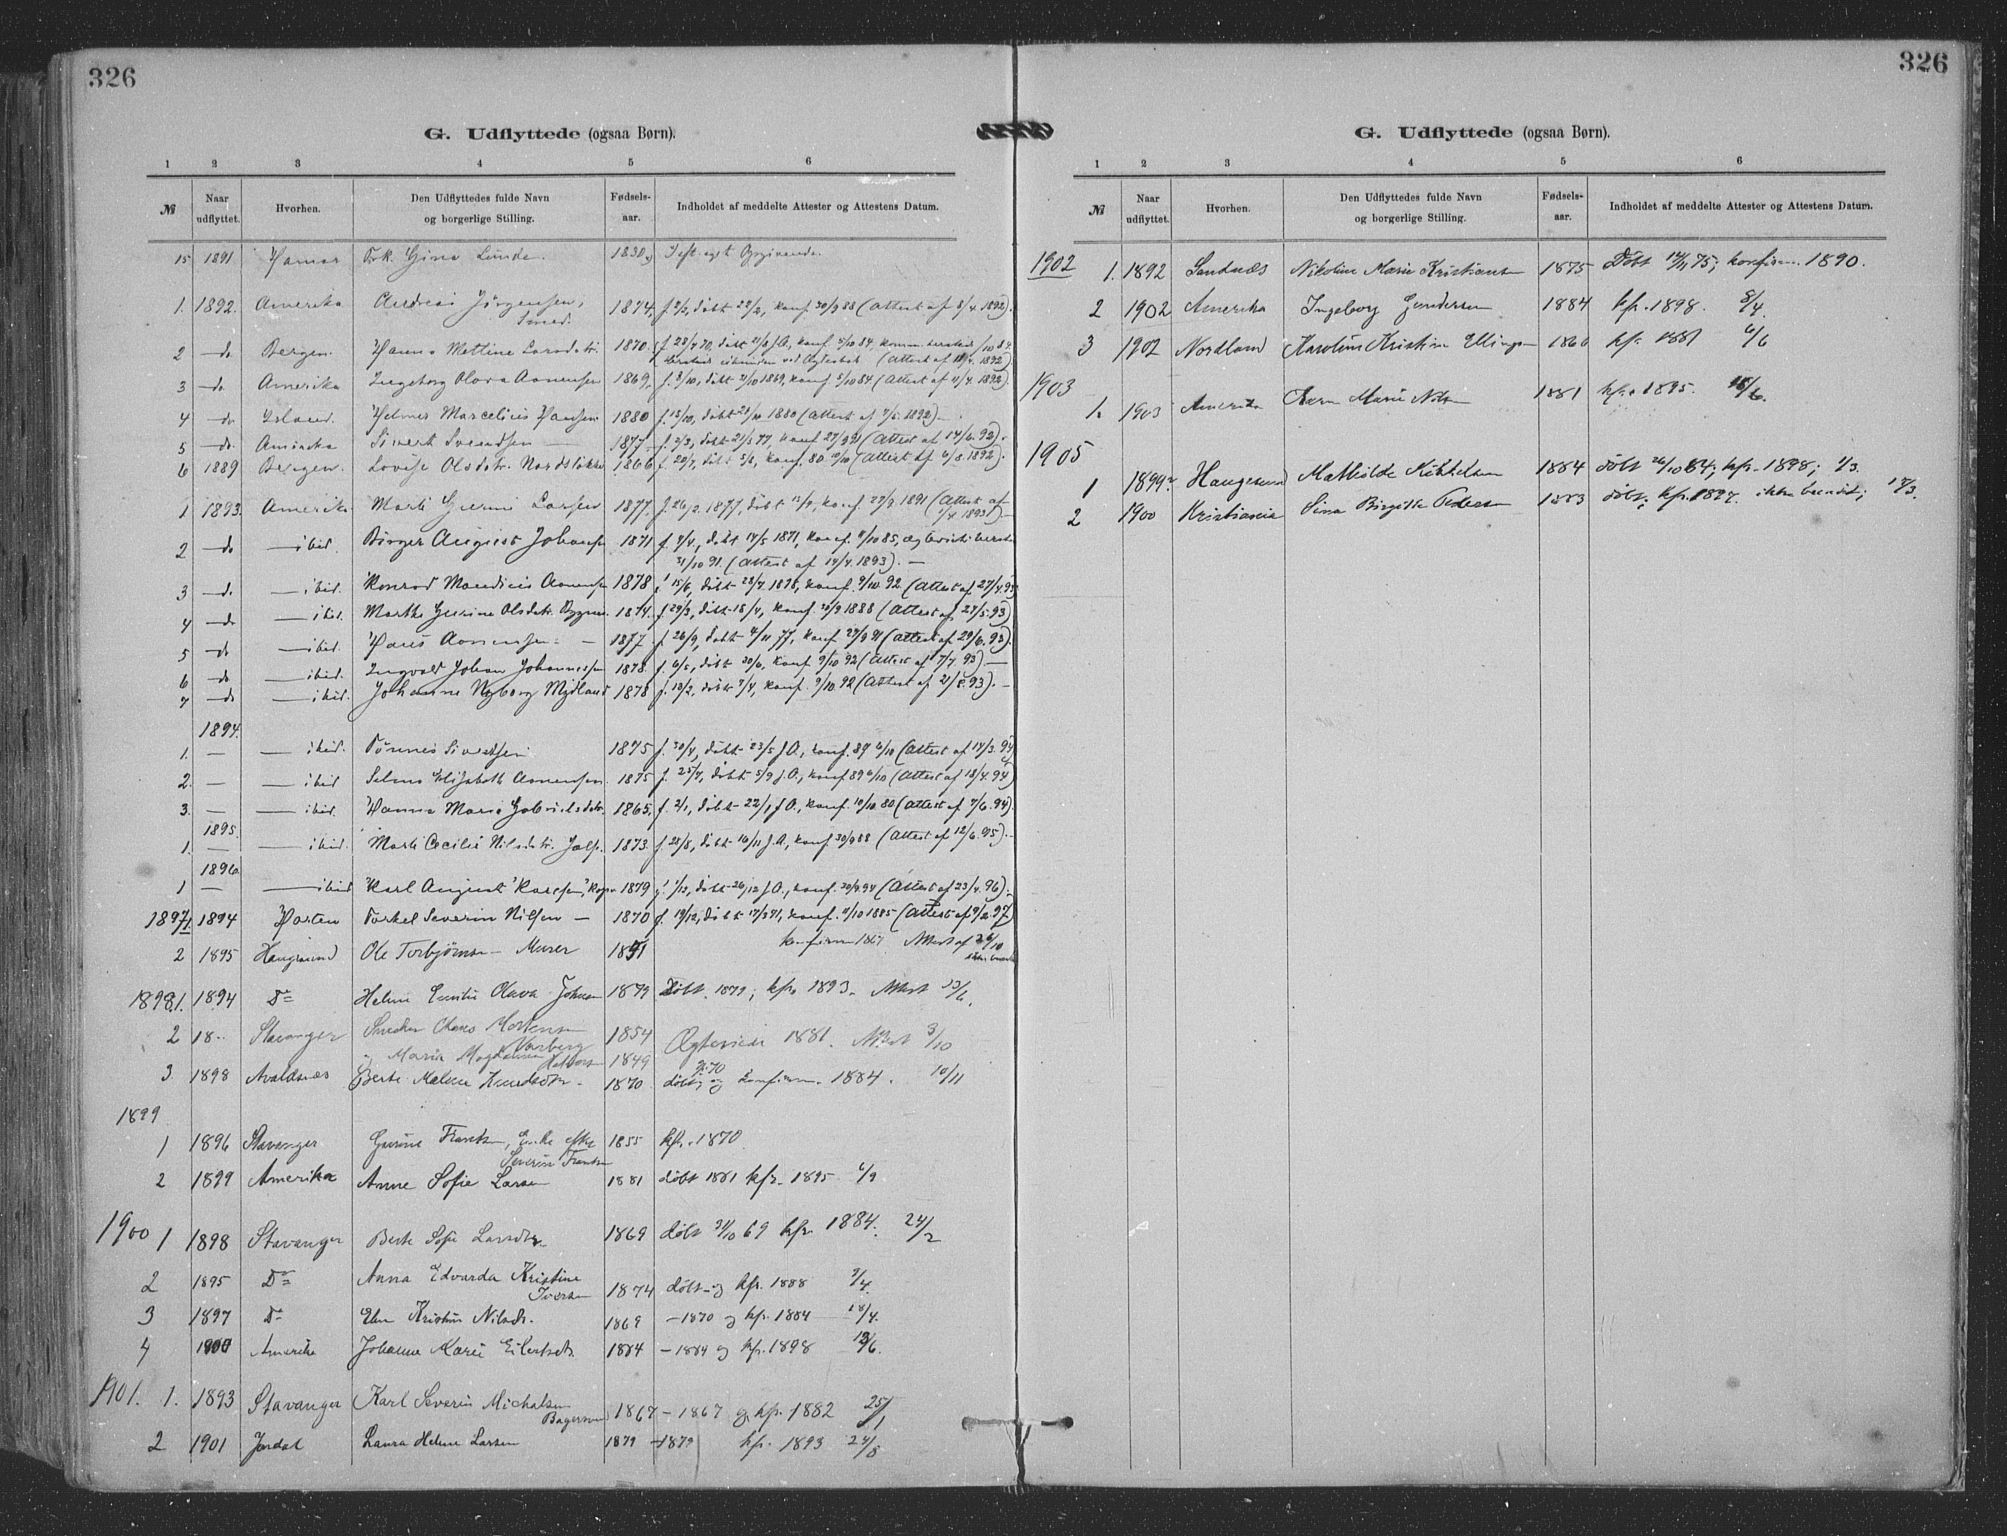 326
G. Udflyttede (ogsaa Børn).
1 2 3 4 5 6
№ Naar udflyttet. Hvorhen. Den Udflyttedes fulde Navn og borgerlige Stilling. Fødsels-aar. Indholdet af meddelte Attester og Attestens Datum.
15 1891 Hamar Gina Lunde. 1830
1. 1892. Amerika Andreas Jörgensen, 1874. f. döbt konf. 30/9 88 (Attest af 8/4. 1892).
Smed.
2 —do Bergen. Hanna Mettine Larsdtr. 1870. f. 28/4 70, döbt
(Attest af 1892)
3 —do Amerika Ingeborg Olava Aanensen 1869. f. 3/10, döbt 1869, konf. 5/10 84 (Attest af 4/4. 1892).
4 —do Island. Helmer Marcelius Hansen 1880 f. 15/10, döbt 1880 (Attest af 7/5. 1892)—
5 —do. Amerika Sivert Svendsen — 1877 f. 2/3, döbt 21/5 77, konf 27/9 91 (Attest af 14/6. 92).
6 1889 Bergen. Lovise Olsdtr. 1866 f. 20/7, döbt 5/8, konf. 80 (Attest af 6/8. 1892).
1 1893. Amerika Marti Gurine Larsen 1877. f. 26/2. 1877, döbt konf. 27/9 1891 (Attest af
1/4 1893)—
2 —do —ibid. Birger August Johansen 1871 f. döbt 14/5 1871, konf. 4/10 85,
31/10 91. (Attest af 14/4. 1893). —
3 —do. —ibid. Konrad Mauritius Aanensen 1878 f. 15/6, döbt 28/7 1878, konf. 9/10. 92 (Attest af 27/4. 93)
4 —do —ibid. Marthe Gurine Olsdtr. 1874. f. 29/3, döbt 18/4, konf. 30/9 1888 (Attest af 27/5. 93)
5 —do —ibid. Hans Aanensen. — 1877. f. 26/9, döbt 4/11 77, konf 27/9 91 (Attest af 29/6. 93).
6 —do —ibid. Ingvald Johan Johannessen 1878. f. 6/5, döbt 30/6, konf. 9/10 92 (Attest af 7/7. 93).—
7 —do —ibid. Johanne Nyborg Mydland 1878 f. 10/2, döbt 7/4, konf. 9/10. 92 (Attest af 21/8. 93).—
1894.
1. — —ibid. Tönnes Sivertsen 1875 f. 30/4, döbt 23/5 f.A., konf. 89 6/10 (Attest af 17/3. 94)
2. — —ibid Selma Elisabeth Aanensen. 1875 f. 25/7, döbt 5/9 f.A., konf. 89 6/10 (Attest af 18/4. 94)
3. — —ibid. Hanna Marie Gabrielsdtr. 1865. f. 2/1, döbt 22/1 f.A., konf. 10/10. 80 (Attest af 7/6. 94).
1895.
1. — —ibid. Marti Cecilie Nilsdtr. 1873. f. 28/8, döbt 16/11 f.A., konf 30/9 88 (Attest af 12/6. 95).—
1896
1 — —ibid Karl August Karlsen, 1879 f. 1/12, döbt 26/12 f.A., konf. 30/9 94 (Attest af 23/4. 96).—
1897 1. 1894 Horten Torkel Severin Nilsen — 1870 f. 19/12, döbt 17/3 71, konf. 4/10 1885 (Attest af 9/2. 97)
2 1895 Haugesund Ole Torbjörnsen Murer 1851 konfirm 1867 Attest af 26/10
1898 1. 1894 Do Helene Emilie Olava Johnsen 1879 Döbt. 1879; kfr. 1893. Attest 23/6.
2 18.. Stavanger Snedker Claus Mortensen 1854 Ægteviede 1881. Attest 3/10
Varberg
og Maria Magdalene 1849
3. 1898 Avaldsnes Berte Malene Knudsdtr. 1870. döbt og konfirm. 1884. 10/11
1899
1 1896 Stavanger Gurine Frantsen, Enke efter 1855 kfr. 1870.
Severin Frantsen
2 1899 Amerika Anne Sofie Larsen 1881 döbt 1881 kfr. 1895 6/9
1900 1 1898 Stavanger Berte Sofie Larsdtr. 1869 döbt 31/10 69 kfr. 1884. 24/2
2 1895 Do Anna Edvarda Kristine 1874 döbt og kfr. 1888 3/4.
Iversen
3 1897 Do Elen Kristine Nilsdtr. 1869 —1870 og kfr. 1884 18/4.
4 1900 Amerika Johanne Marie Eilertsdtr. 1884 —1884 og kfr. 1898
1901. 1. 1893 Stavanger Karl Severin Michalsen 1867 — 1867 og kfr. 1882 25/1
Bagersvend
2 1901 Laura Helene Larsen 1879 —1879 kfr. 1893 24/8
326
G. Udflyttede (ogsaa Børn).
1 2 3 4 5 6
№ Naar udflyttet. Hvorhen. Den Udflyttedes fulde Navn og borgerlige Stilling. Fødsels-aar. Indholdet af meddelte Attester og Attestens Datum.
1902 1. 1892 Sandnæs Nikoline Marie Kristiansen 1875 Döbt 75; konfirm. 1890.
2 1902 Amerika Ingeborg Gundersen 1884 kfr. 1898. 8/4.
3 1902 Nordland Karoline Kristine Ellingsen 1866 kfr. 1881 6/6
1903
1. 1903 Amerika Karen Marie Nilsen 1881 kfr. 1895.
1905
1 1899 Haugesund Mathilde 1884 döbt 26/10 84; kfr. 1898; 1/3.
2 1900 Kristiania Sina Birgitte Pedersen 1883 döbt, kfr. 1897. ikke bevidst; 17/3.